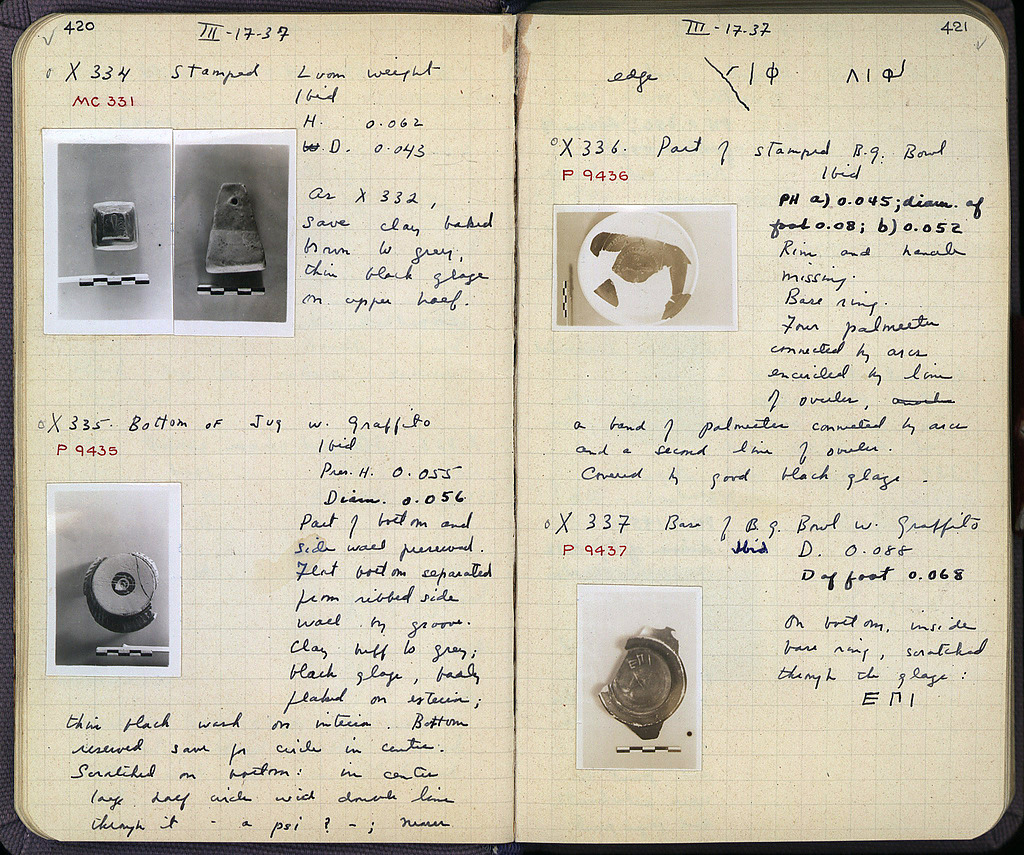 420
III-17-37
X 334 Stamped Loom weight
MC 331
Ibid
H. 0.062
D. 0.043
As X 332,
save clay baked
brown to grey;
thin black glaze
on upper half.
X 335. Bottom of Jug w. Graffito
Ibid
P 9435
Pres. H. 0.055
Diam. 0.056
Part of bottom and
side wall preserved.
Flat bottom separated
from ribbed side
wall by groove.
Clay buff to grey;
black glaze, badly
flaked on exterior;
thin black wash on interior. Bottom
reserved save for circle in center.
Scratched on bottom: in center
large half circle with double line
through it - a psi ? - ; nearer
III-17-37
421
edge
Λ Ι Φ
X 336. Part of stamped B.g. Bowl
Ibid
P 9436
PH a) 0.045; diam. of
foot 0.08; b) 0.052
Rim and handle
missing.
Base ring.
Four palmettes
connected by arcs
encircled by line
of ovules,
a band of palmettes connected by arcs
and a second line of ovules.
Covered by good black glaze.
X 337 Base of B.g. Bowl w. Graffito
P 9437
Ibid D. 0.088
D of foot 0.068
On bottom, inside
base ring, scratched
through the glaze:
Ε Π Ι
ΕΠΙ